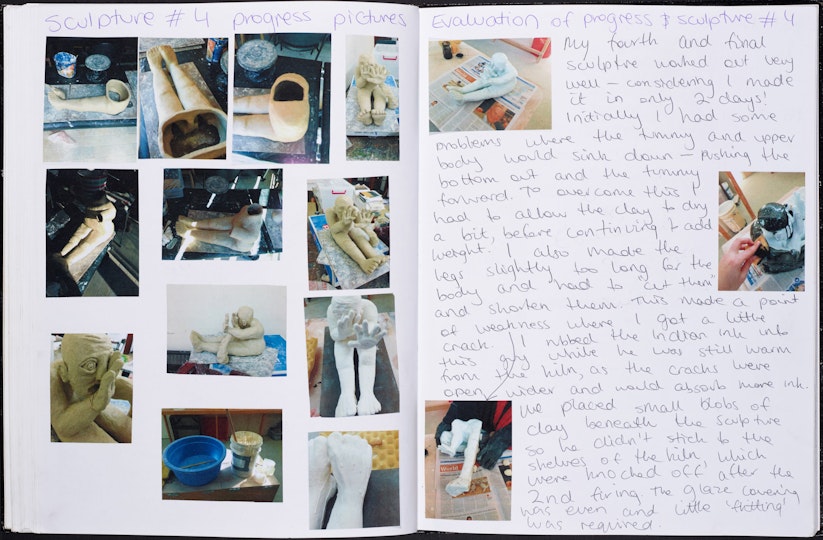 Sculpture # 4 progress pictures
Evaluation of progress & sculpture # 4
My fourth and final
sculptre worked out very
well – considering I made
it in only 2 days!
Initially I had some
problems where the tummy and upper
body would sink down – pushing the
bottom out and the tummy
forward. To overcome this I
had to allow the clay to dry
a bit, before continuing to add
weight. I also made the
legs slightly too long for the
body and had to "cut them"
and shorten them. This made a point
of weakness where I got a little
crack. I rubbed the Indian ink into
this guy while he was still warm
from the kiln, as the cracks were
open wider and would absorb more ink.
We placed small blobs of
clay beneath the sculpture
so he didn't stick to the
shelves of the kiln, which
were knocked off after the
2nd firing. The glaze covering
was even and little 'fettling'
was required.
World